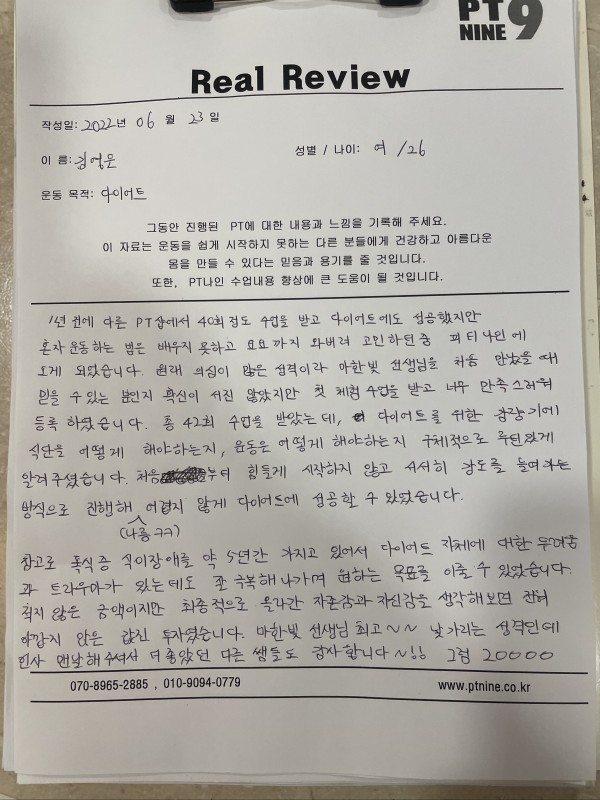 PT
NINE 9
Real Review
작성일: 2022년 06 월 23 일
이 름: 김영은
성별 / 나이: 여 /26
운동 목적: 다이어트
그동안 진행된 PT에 대한 내용과 느낌을 기록해 주세요.
이 자료는 운동을 쉽게 시작하지 못하는 다른 분들에게 건강하고 아름다운
몸을 만들 수 있다는 믿음과 용기를 줄 것입니다.
또한, PT나인 수업내용 향상에 큰 도움이 될 것입니다.
1년 전에 다른 PT샵에서 40회정도 수업을 받고 다이어트에도 성공했지만
혼자 운동하는 법은 배우지 못하고 요요까지 와버려 고민하던 중 피티나인에
오게 되었습니다. 원래 의심이 많은 성격이라 마한빛 선생님을 처음 만났을 때
믿을 수 있는 분인지 확신이 서진 않았지만 첫 체험수업을 받고 너무 만족스러워
등록하였습니다. 총 42회 수업을 받았는데, 다이어트를 위한 감량기에
식단을 어떻게 해야하는지, 운동은 어떻게 해야하는지 구체적으로 루틴있게
알려주셨습니다. 처음부터 힘들게 시작하지 않고 서서히 강도를 늘려가는
방식으로 진행해 어렵지 않게 다이어트에 성공할 수 있었습니다.
(나름ㅋㅋ)
참고로 폭식증 식이장애를 약 5년간 가지고 있어서 다이어트 자체에 대한 두려움
과 트라우마가 있는데도 잘 극복해나가며 원하는 목표를 이룰 수 있었습니다.
적지 않은 금액이지만 최종적으로 올라간 자존감과 자신감을 생각해보면 전혀
아깝지 않은 값진 투자였습니다. 마한빛 선생님 최고~~ 낯가리는 성격인데
인사 맨날 해주셔서 더 좋았던 다른 쌤들도 감사합니다~!! 그럼 20000
070-8965-2885 , 010-9094-0779
www.ptnine.co.kr